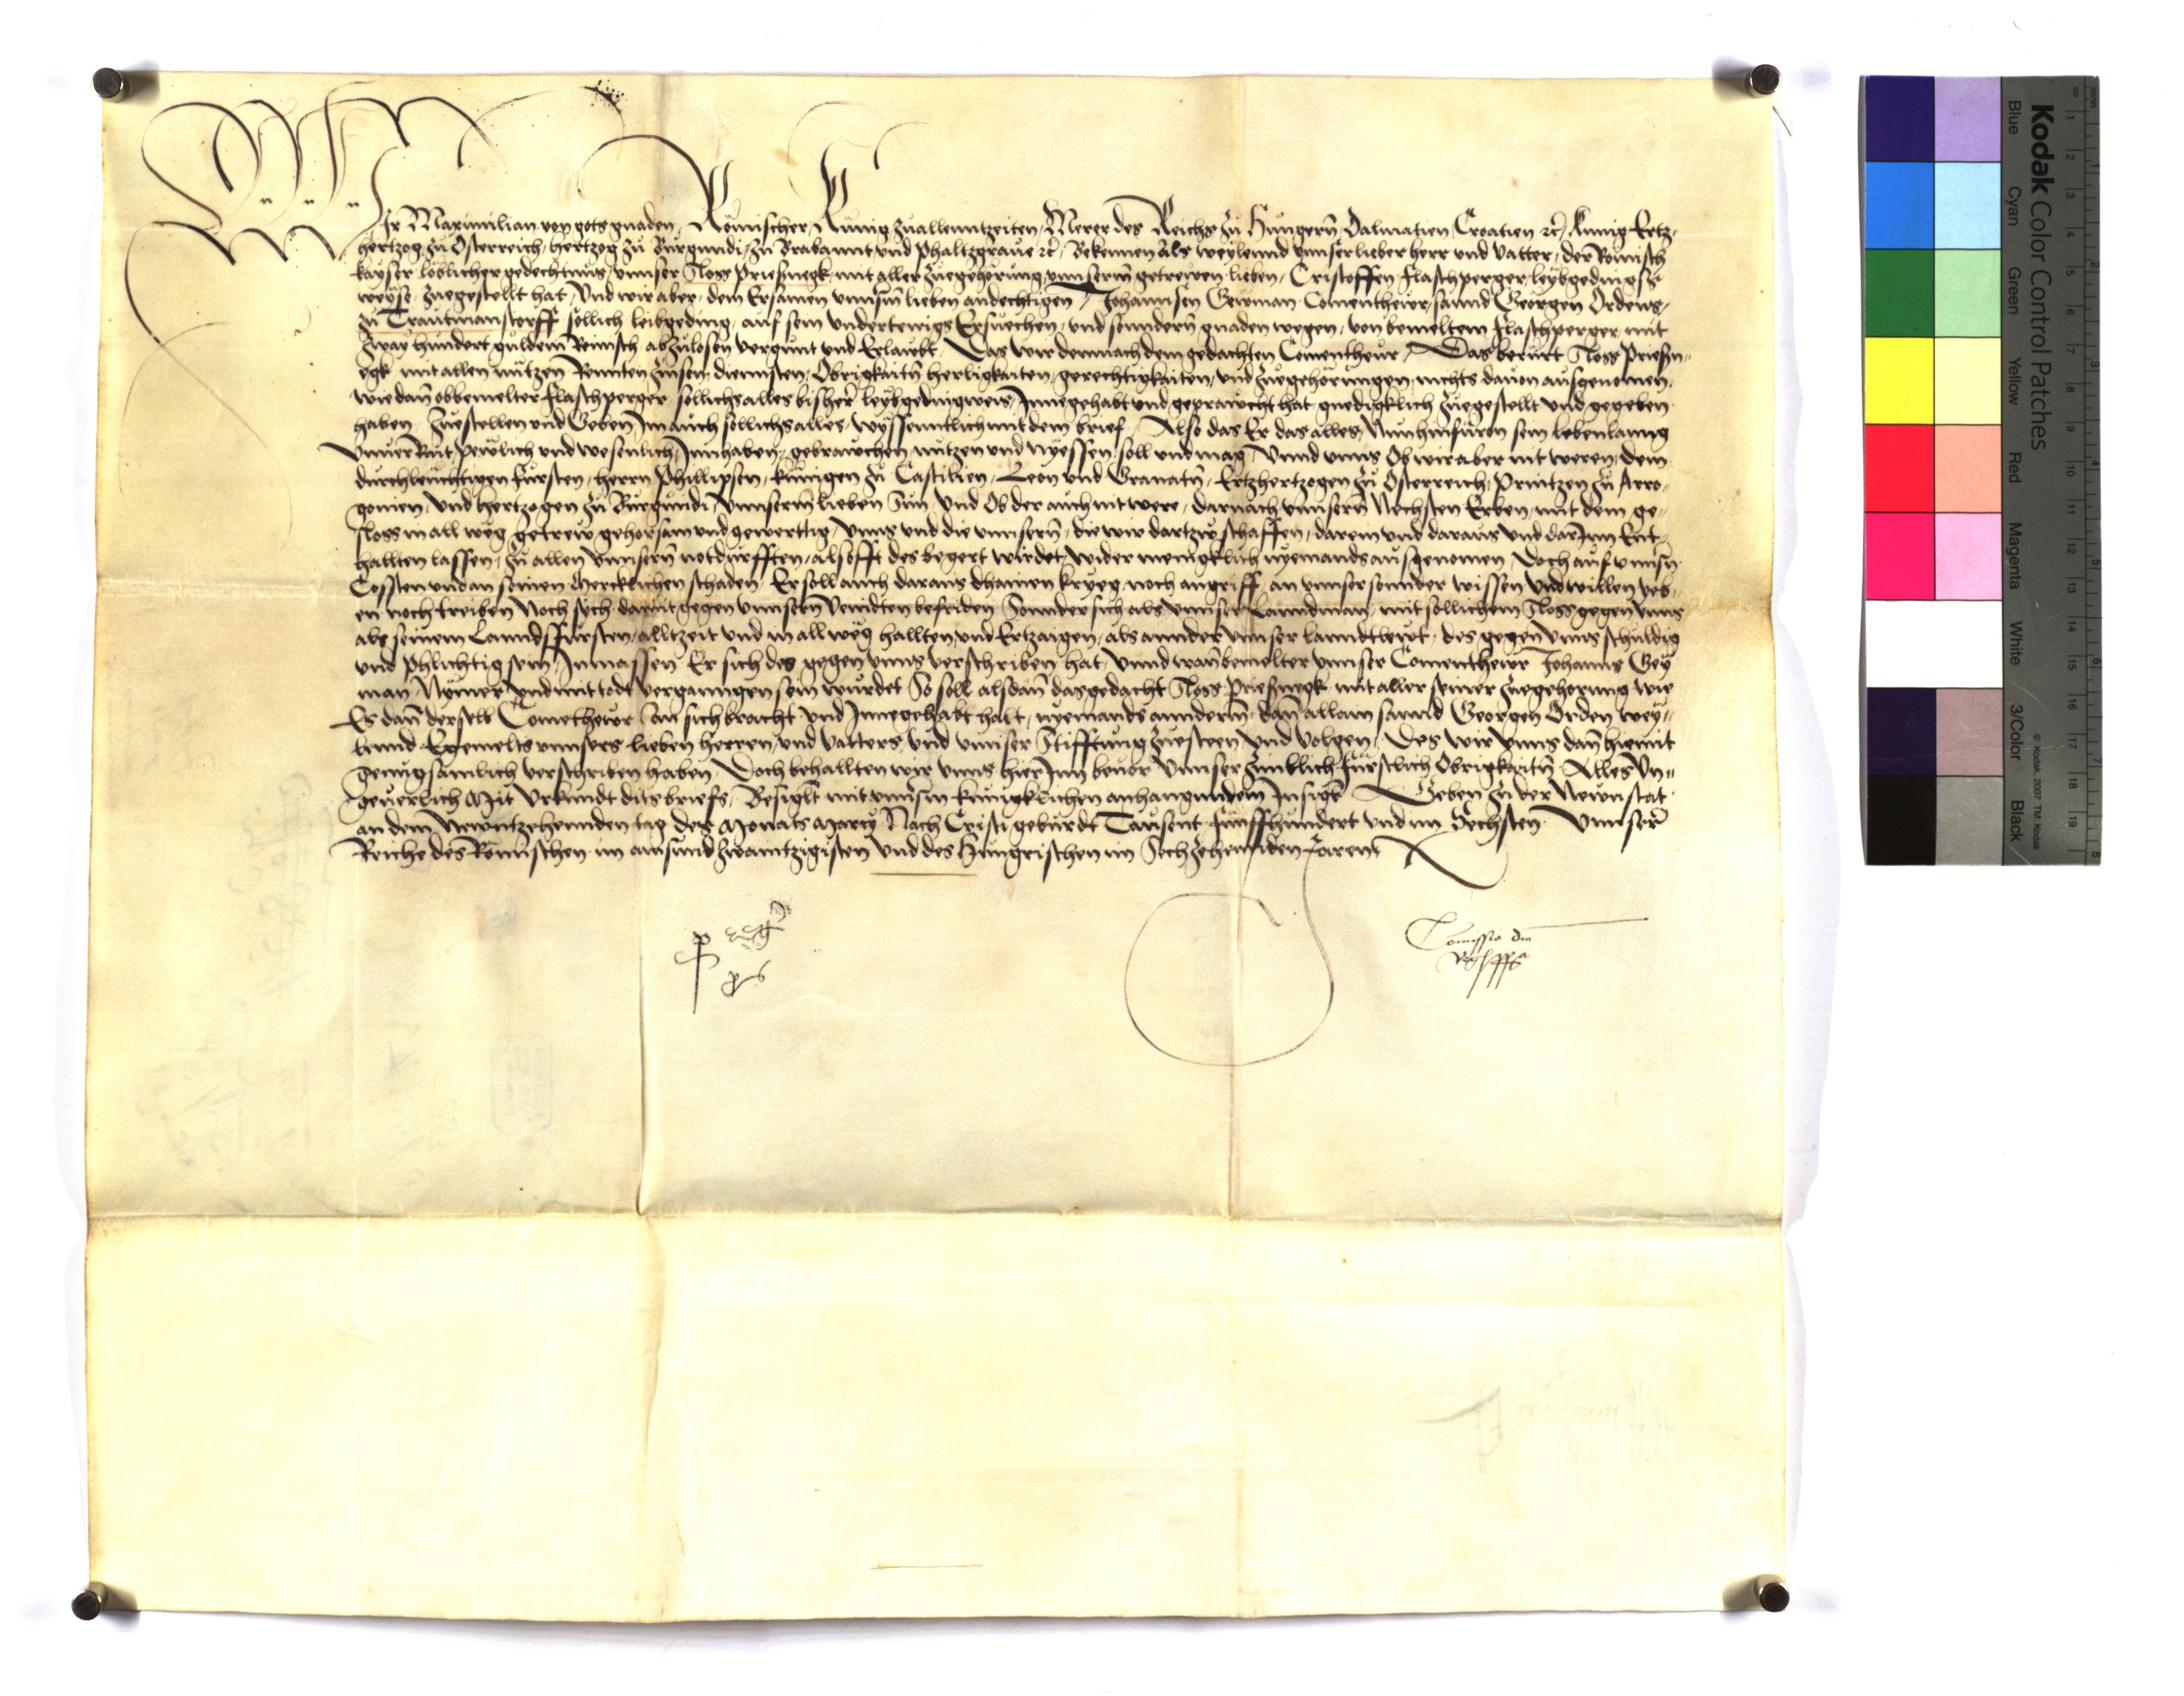 Wir Maximilian von gots gnaden Römischer Kunig zuallenntzeiten Merer des Reichs zu Hungern Dalmatien Croatien etc Kunig Ertz-
hertzog zu Österreich hertzog zu Burgundi zu Brabannt und phaltzgraue etc Bekennen als weylennd unnser lieber herr und Vatter der Römisch
kayser löblicher gedechtnus unnser Sloss Priesnegk mit aller zuegehörung unnserm getrewen lieben Cristoffen Flaschperger leybgedings
weyse zuegestellt hat Und wir aber dem Ersamen unnserm lieben andechtigen Johannsen Geuman Comentheür sannd Georgen Ordens
zu Trautmanstorff sollich leibgeding auf sein undertenigs Ersuechen und sonndern gnaden wegen von bemeltem Flaschperger mit
zway hundert guldein Reinisch abzulosen vergunt und Erlaubt Das wir demnach dem gedachten Comentheür Das berürt Sloss Priesn-
egk mit allen nützen Rennten zinsen diennsten Obrigkaitn herligkaiten gerechtigkaiten und zuegehörungen nichts dauon ausgenomen
wie dan obbemelter Flaschperger sollichs alles bisher leybgedingweis Innegehabt und gepraucht hat gnedigklich zuegestellt und gegeben
haben Zuestellen und Geben Im auch sollichs alles wyssenntlich mit dem brief Also das Er das alles Nun hinfüron sein lebenlanng
Unuerrut peulich und wesenlich Innhaben gebrauchen nützen und nyessen soll und mag Unnd unns Ob wir aber nit weren dem
durchleuchtigen fürsten herrn Phillipsen künigen zu Castilien Leon und Granatn Ertzhertzogen zu Österreich Printzen zu Arro-
gonien und hertzogen zu Burgundi unnserm lieben Sun Und Ob der auch nit were darnach unnsern Nechsten Erben mit dem ge-
sloss in all weg getrew gehorsam und gewerttig unns und die unnsern die wir dartzu schaffen darein und daraus und darInn Ent-
hallten lassen zu allen unnsern notdurfften als offt des begert wirdet wider menigklich nyemands ausgenomen Doch auf unnsern
Cossten und an seinen Mercklichen schaden Er soll auch daraus dhainen kryeg noch angriff an unnser sonnder wissen und willen yeb-
en noch treiben Noch sych darinne gegen unnsern Veindten befriden Sonnder sich als unnser Lanndman mit sollichem Sloss gegen unns
als seinem Lanndsfürsten alltzeit und in all weg hallten und Ertzaigen als annder unnser lanndtlewt des gegen unns schuldig
und phlichtig sein Inmassen Er sich des gegen unns verschriben hat Unnd wan bemelter unnser Comentheür Johanns Gey
man Nymer und mit todt verganngen sein würdet So soll alsdan das gedacht Sloss Priesnegk mit aller seiner zuegehorung wie
Es dan derselb Comentheür an sich bracht und Innegehabt hatt nyemands annderm dan allain sannd Georgen Orden wey-
lennd Egemelts unnsers lieben herren und vatters und unnser Stifftung zuesteen und volgen Des wir unns dan hiemit
genugsamlich verschriben haben Doch behallten wir unns hierInn beuor unnser fürstlich Obrigkaitn Alles Un-
geuerlich Mit Urkundt dits briefs Besiglt mit unnserm kunigklichen anhangundem Insigl Geben zu der Newnstat
an dem Newntzehennden tag des Monats Marcy Nach Cristi geburdt Tausent Fünffhundert und im Sechsten Unnser
Reiche des Römischen im ainsundzwaintzigisten und des Hungrischen im Sechzehennden Jaren
p regem p s
Comissio dni
Regis ppa
Kodak Color Control Patches
Blue Cyan Green Yellow Red Magenta White 3/Color Black
© Kodak, 2007 TM: Kodak
cm 1 2 3 4 5 6 7 8 9 10 11 12 13 14 15 16 17 18 19
inches 1 2 3 4 5 6 7 8